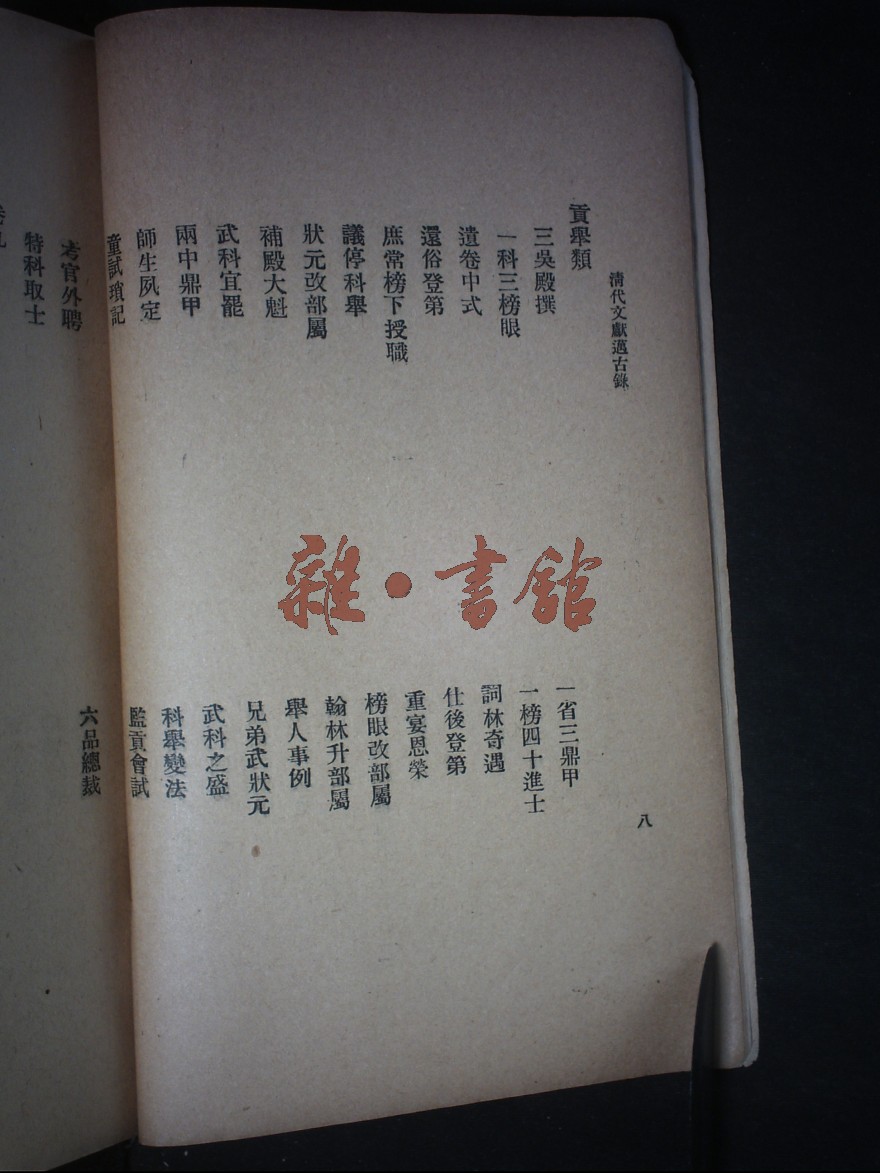 清代文獻邁古錄
八
貢舉類
三吳殿撰
一省三鼎甲
一科三榜眼
一榜四十進士
遺卷中式
詞林奇遇
還俗登第
仕後登第
庶常榜下授職
重宴恩榮
議停科舉
榜眼改部屬
狀元改部屬
翰林升部屬
補殿大魁
舉人事例
武科宜罷
兄弟武狀元
兩中鼎甲
武科之盛
師生夙定
科舉變法
童試瑣記
監貢會試
考官外聘
六品總裁
特科取士
雜·書館